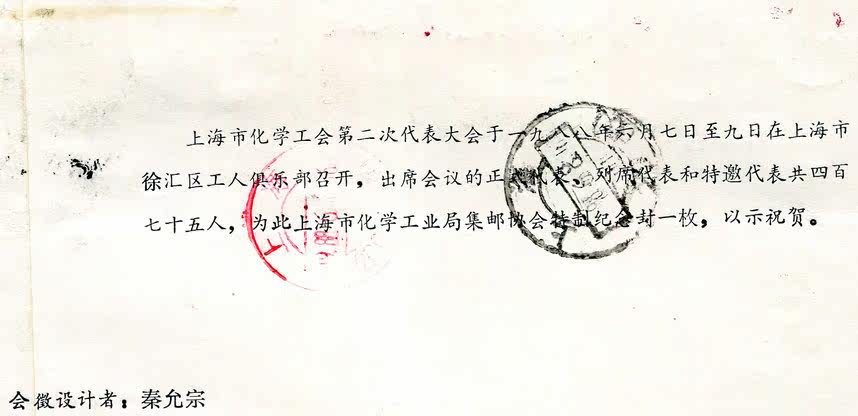 上海市化学工会第二次代表大会于一九八八年六月七日至九日在上海市
徐汇区工人俱乐部召开，出席会议的正式代表、列席代表和特邀代表共四百
七十五人，为此上海市化学工业局集邮协会特制纪念封一枚，以示祝贺。
会徵设计者：秦允宗